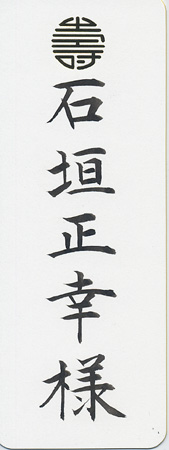 壽
石垣正幸様